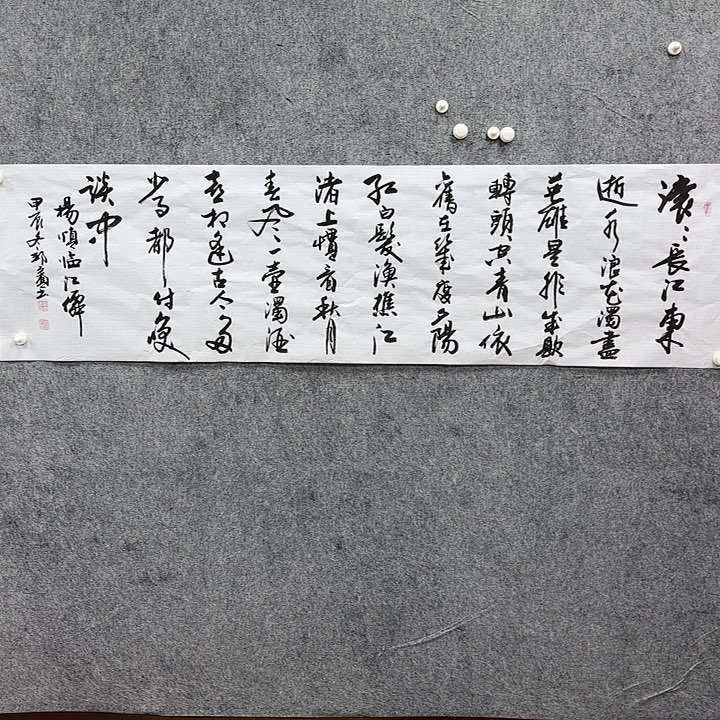 滾〻長江東
逝水浪花淘盡
英雄是非成敗
轉頭空青山依
舊在幾度夕陽
紅白髮漁樵江
渚上慣看秋月
春風一壺濁酒
喜相逢古今多
少事都付笑
談中
楊慎临江僊
甲辰冬